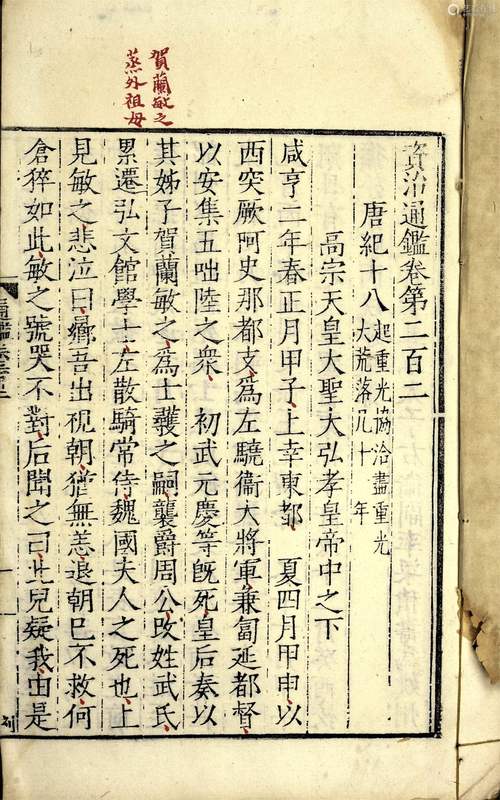 賀蘭敏之
蒸外祖母
資治通鑑卷第二百二
唐紀十八
起重光協洽盡重光
大荒落凡十一年
高宗天皇大聖大弘孝皇帝中之下
咸亨二年春正月甲子上幸東都 夏四月甲申以
西突厥阿史那都支爲左驍衞大將軍兼匐延都督
以安集五咄陸之衆 初武元慶等旣死皇后奏以
其姊子賀蘭敏之爲士彠之嗣襲爵周公改姓武氏
累遷弘文館學士左散騎常侍魏國夫人之死也上
見敏之悲泣曰曏吾出視朝猶無恙退朝已不救何
倉猝如此敏之號哭不對后聞之曰此兒疑我由是